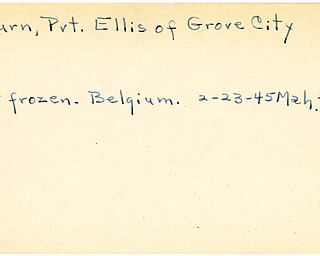 urn, Pvt. Ellis of Grove City
frozen. Belgium. 2-23-45 Mah.